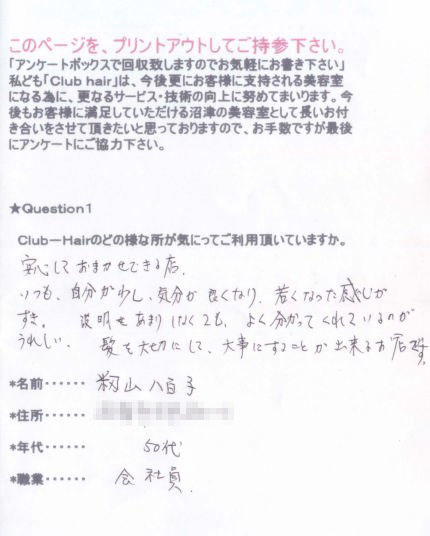 このページを、プリントアウトしてご持参下さい。
「アンケートボックスで回収致しますのでお気軽にお書き下さい」
私ども「Club hair」は、今後更にお客様に支持される美容室
になる為に、更なるサービス・技術の向上に努めてまいります。今
後もお客様に満足していただける沼津の美容室として長いお付
き合いをさせて頂きたいと思っておりますので、お手数ですが最後
にアンケートにご協力下さい。
★Question1
Club－Hairのどの様な所が気にってご利用頂いていますか。
安心しておまかせできる店.
いつも、自分が少し、気分が良くなり、若くなった感じが
すき。説明をあまりしなくても、よく分かってくれているのが
うれしい、髪を大切にして、大事にすることが出来るお店です。
*名前・・・・・・山八百子
*住所・・・・・・
*年代・・・・・・50代
*職業・・・・・・会社員